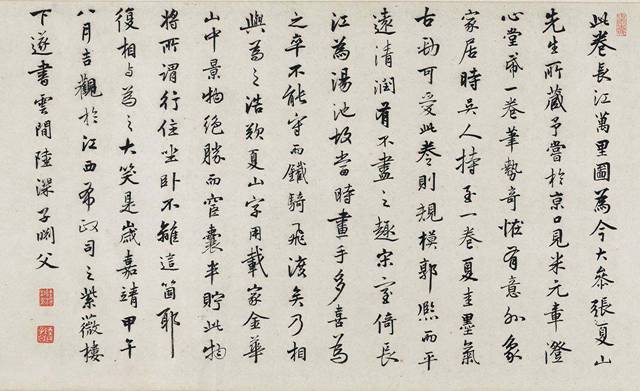 此卷長江萬里圖為今大參張夏山
先生所藏予嘗於京口見米元章澄
心堂帋一卷筆勢奇恠有意外象
家居時吳人持至一卷夏圭墨氣
古勁可愛此卷則規模郭熙而平
遠清潤有不盡之趣宋室倚長
江為湯池故當時畫手多喜為
之卒不能守而鐵騎飛渡矣乃相
與為之浩歎夏山字用載家金華
山中景物絕勝而宦囊率貯此物
將所謂行住坐臥不離這箇耶
復相與為之大笑是歲嘉靖甲午
八月吉觀於江西布政司之紫薇樓
下遂書雲間陸深子淵父